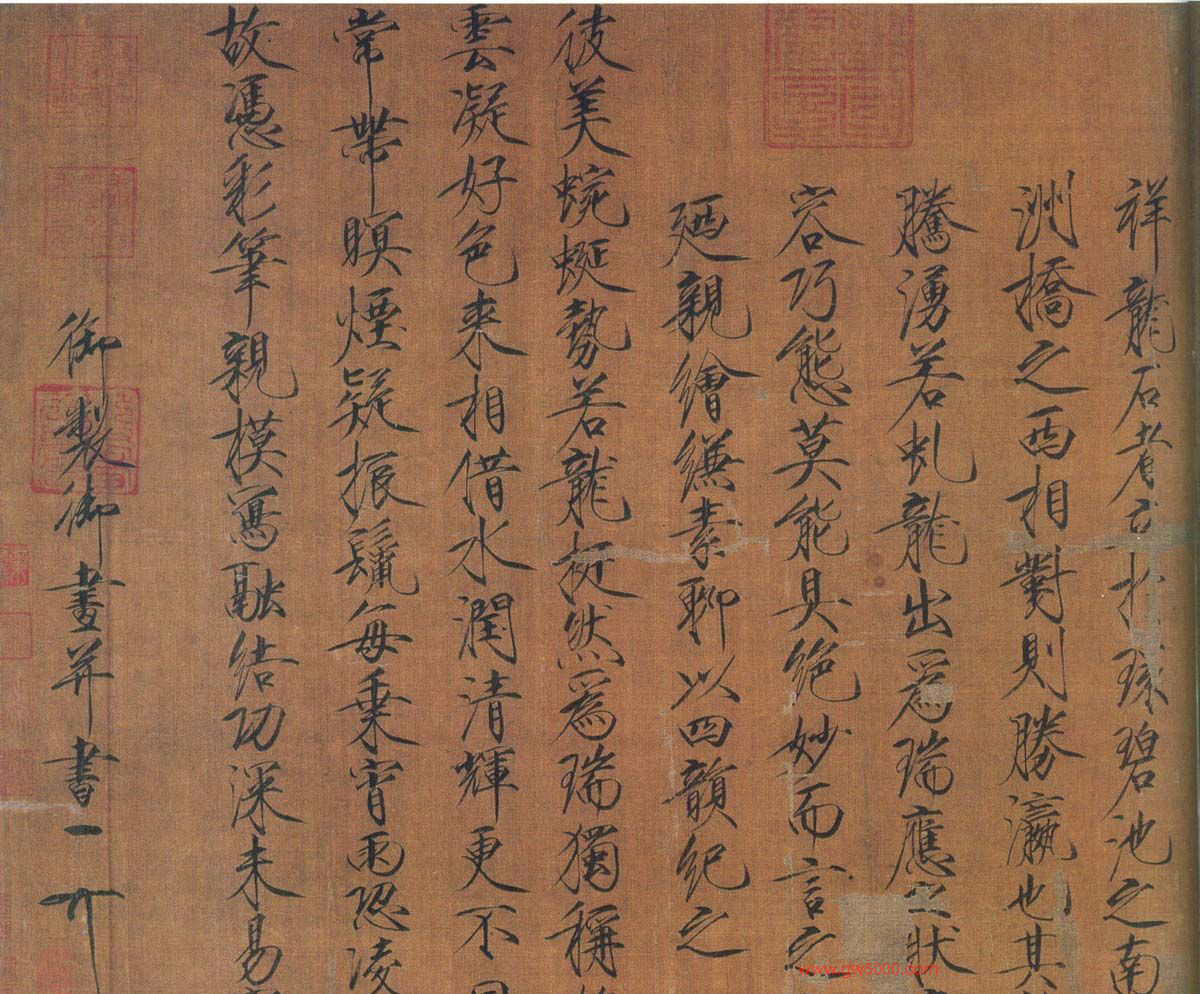 祥龍石者立於環碧池之南
洲橋之西相對則勝瀛也其
騰湧若虬龍出爲瑞應之狀
容巧態莫能具絶妙而言之
廼親繪縑素聊以四韻紀之
彼美蜿蜒勢若龍挺然爲瑞獨稱
雲凝好色来相借水潤清輝更不
常帶暝煙疑振鬣每乗宵雨恐凌
故憑彩筆親模寫融結功深未易
御製御畫并書
www.gw5000.com